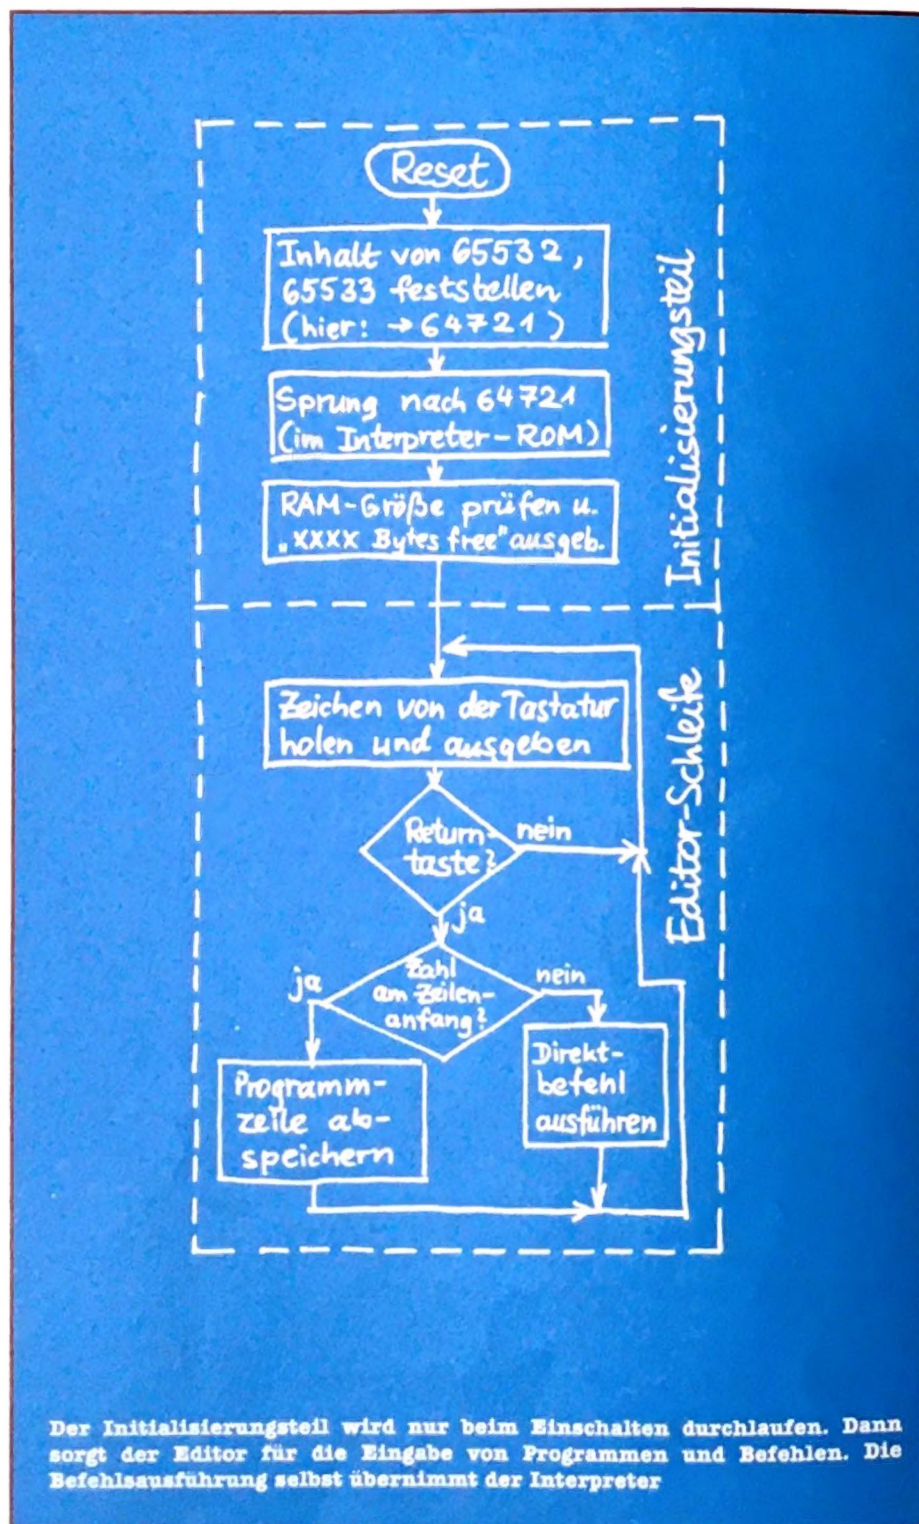 Reset
Inhalt von 65532,
65533 feststellen
(hier: →64721)
Sprung nach 64721
(im Interpreter-ROM)
RAM-Größe prüfen u.
„XXXX Bytes free" ausgeb.
Initialisierungsteil
Zeichen von der Tastatur
holen und ausgeben
Return-
taste?
nein
ja
Zahl
am Zeilen-
anfang?
ja
nein
Programm-
zeile ab-
speichern
Direkt-
befehl
ausführen
Editor-Schleife
Der Initialisierungsteil wird nur beim Einschalten durchlaufen. Dann
sorgt der Editor für die Eingabe von Programmen und Befehlen. Die
Befehlsausführung selbst übernimmt der Interpreter